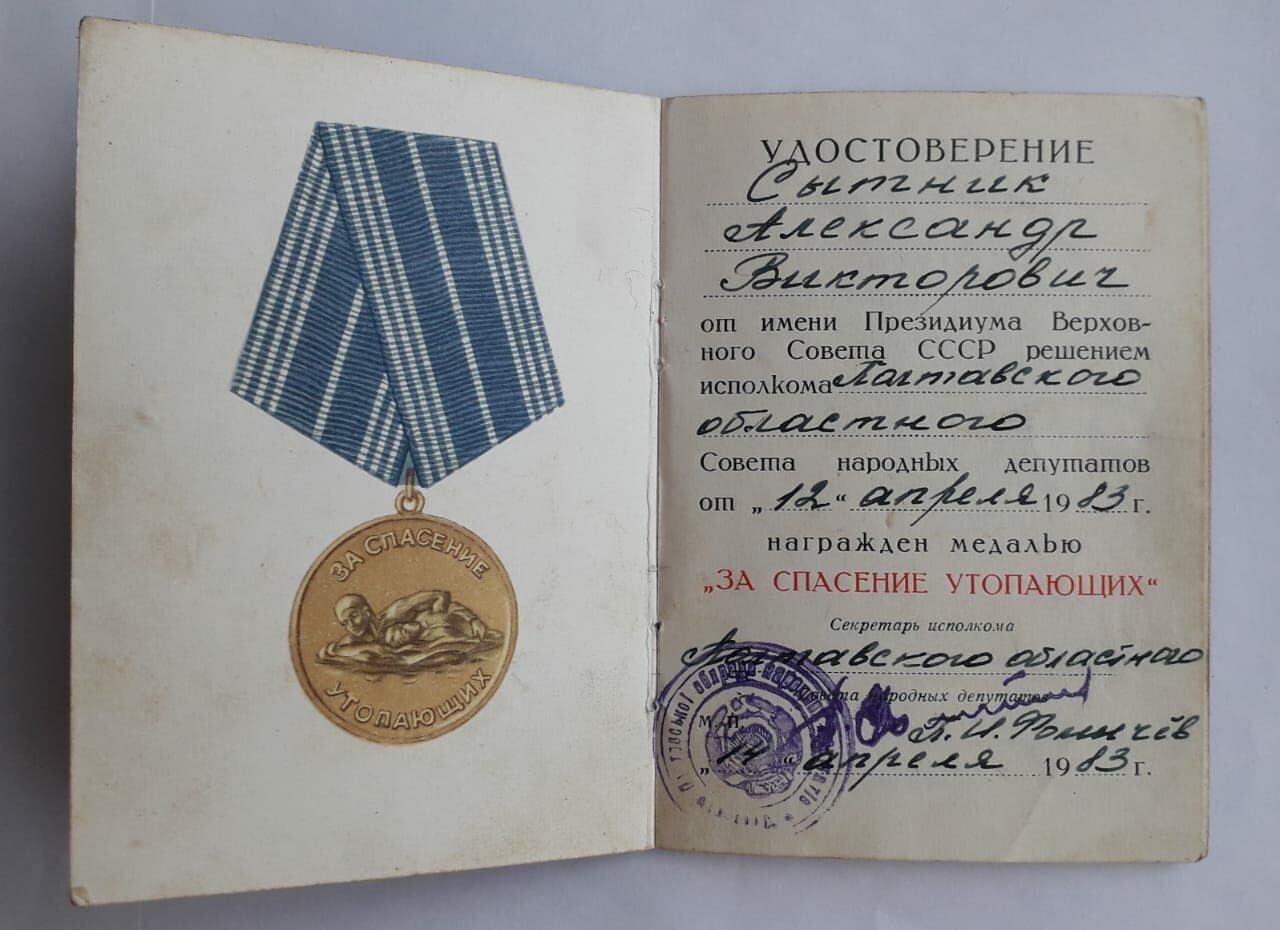 ЗА СПАСЕНИЕ
УТОПАЮЩИХ
УДОСТОВЕРЕНИЕ
Сытник
Александр
Викторович
от имени Президиума Верхов-
ного Совета СССР решением
исполкома Полтавского
областного
Совета народных депутатов
от „12“ апреля 1983 г.
награжден медалью
„ЗА СПАСЕНИЕ УТОПАЮЩИХ“
Секретарь исполкома
Полтавского областного
Совета народных депутатов
М. П.
П. И.
„14“ апреля 1983 г.